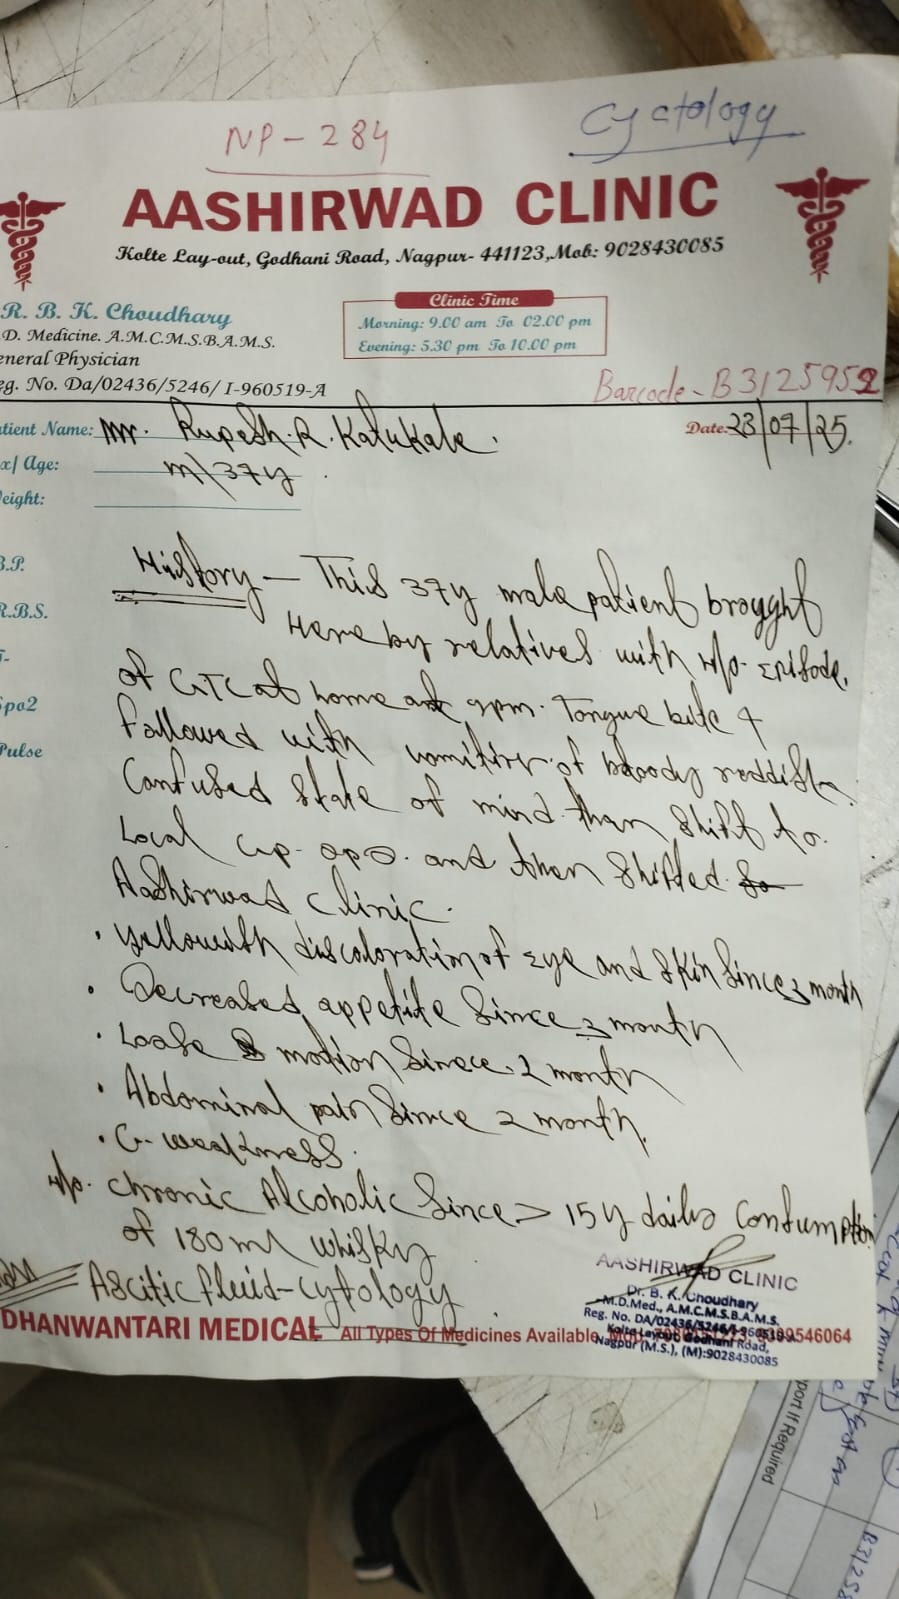 NP-284
Cyctology
AASHIRWAD CLINIC
Kolte Lay-out, Godhani Road, Nagpur- 441123,Mob: 9028430085
R. B. K. Choudhary
D. Medicine. A.M.C.M.S.B.A.M.S.
eneral Physician
eg. No. Da/02436/5246/ I-960519-A
Clinic Time
Morning: 9.00 am To 02.00 pm
Evening: 5.30 pm To 10.00 pm
Barcode - B3125952
atient Name: Mr. Rupesh. R. Katukale.
Date: 23/07/25.
x/ Age: m\37y
eight:
B.P.
R.B.S.
T-
Spo2
Pulse
History - This 37y male patient brought
Here by relatives with H/o- Episode,
of GTC at home at 9pm. Tongue bite &
fallowed with vomiting of bloody reddish.
Confused state of mind. than shift to.
Local and then shifted
Aashirwad Clinic.
• yellowish discoloration of Eye and skin since 3 month
• Decreased appetite since 3 month
• Loase motion sinece. 2 month
• Abdominal pain since 2 month.
• G-weakness.
H/o. chronic Alcoholic since > 15y daily Consumption
of 180ml whisky
Ascitic fluid-cytology
AASHIRWAD CLINIC
Dr. B. K. Choudhary
M.D.Med., A.M.C.M.S.B.A.M.S.
Reg. No. DA/02436/5246/I-960519-A
Kolte Layout Godhani Road,
Nagpur (M.S.), (M):9028430085
DHANWANTARI MEDICAL All Types Of Medicines Available
port If Required